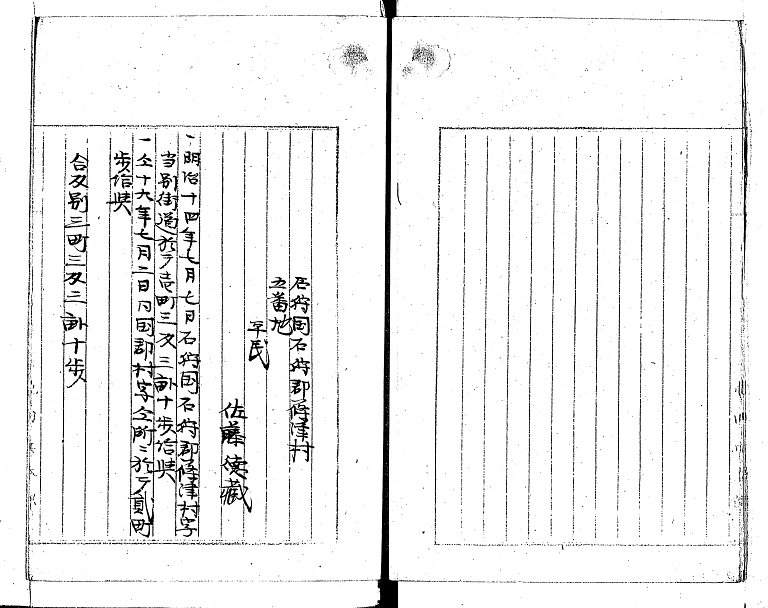 石狩国石狩郡篠津村
五番地
平民
佐藤徳蔵
一明治十四年七月七日石狩国石狩郡篠津村字
当別街道於テ壱町三反三畝十歩給与
一仝十九年七月二日同国郡村字仝所ニ於テ貳町
歩給与
合反別三町三反三畝十歩